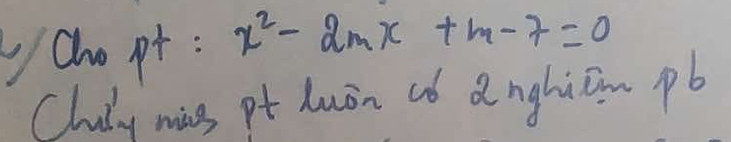 2/ Cho pt : x² - 2mx + m - 7 = 0
Chứng minh pt luôn có 2 nghiệm pb